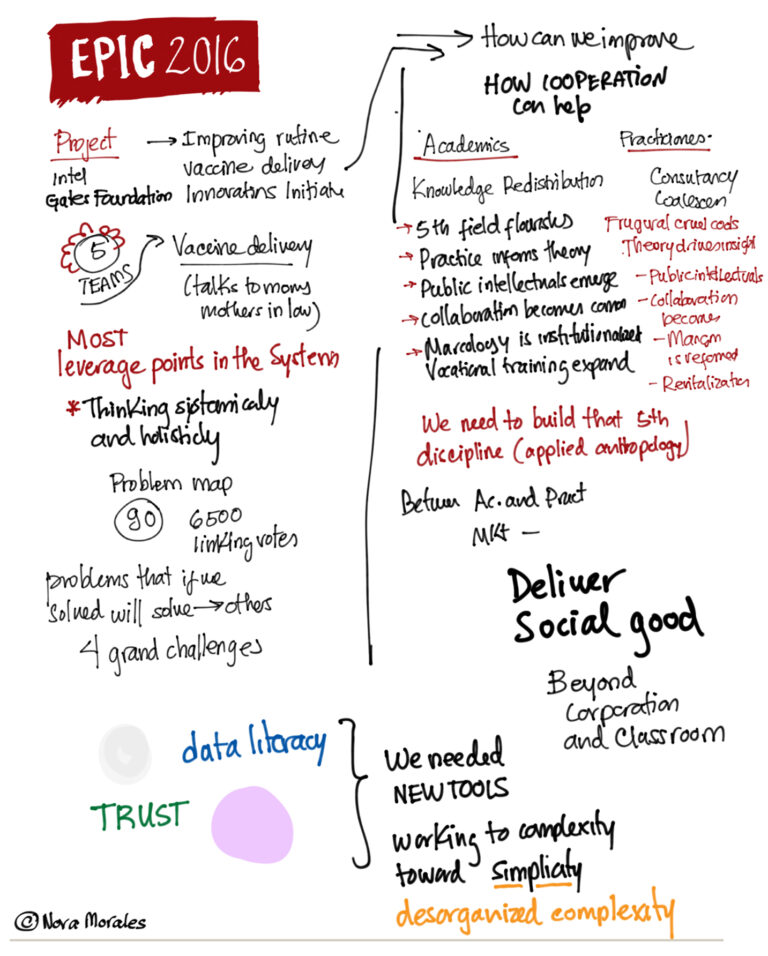 EPIC 2016
Project → Improving rutine
Intel vaccine delivery
Gates Foundation Innovations Initiate
5
TEAMS
Vaccine delivery
(talks to moms
mothers in law)
Most
leverage points in the System
* Thinking systomicaly
and holisticly
Problem map
90 6500
linking votes
problems that if we
solved will solve → others
4 grand challenges
data literacy
TRUST
How can we improve
HOW COOPERATION
can help
Academics
Knowledge Redistribution
→ 5th field flourishs
→ Practice informs theory
→ Public intellectuals emerge
→ collaboration becomes common
→ is institutionalized
Vocational training expand
Practiciones-
Consultancy
Coalescen
Theory driven insight
- Public intellectuals
- Collaboration
becomes
-
is reformed
- Revitalization
We need to build that 5th
discipline (applied anthropology)
Between Ac. and Pract
MKt —
Deliver
Social good
Beyond
Corporation
and Classroom
We needed
NEW TOOLS
working to complexity
toward simplicity
desorganized complexity
© Nora Morales